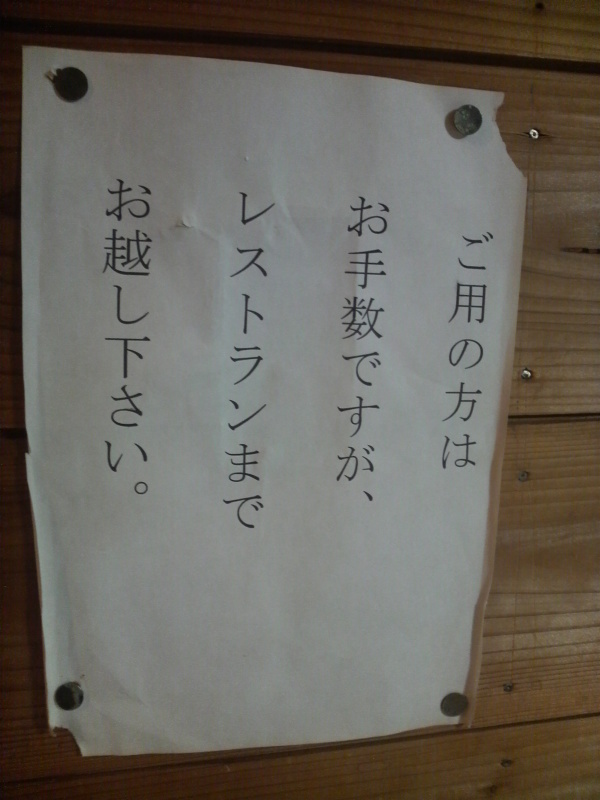 ご用の方は
お手数ですが、
レストランまで
お越し下さい。